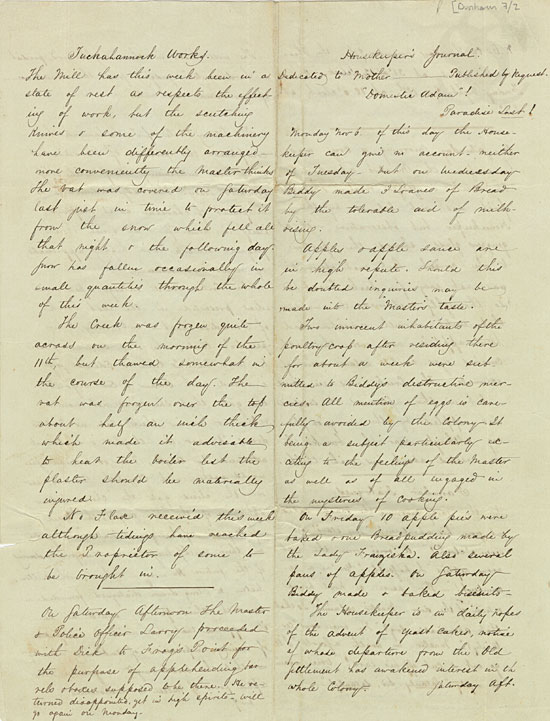 [Dunham 7/2
Tuckahannock Works.
The Mill has this week been in a
state of rest as respects the effect-
ing of work, but the scutching
knives & some of the machinery
have been differently arranged
more conveniently the Master thinks
The vat was covered on Saturday
last just in time to protect it
from the snow which fell all
that night & the following day.
Snow has fallen occasionally in
small quantities through the whole
of this week.
The Creek was frozen quite
across on the morning of the
11th but thawed somewhat in
the course of the day. The
vat was frozen over the top
about half an inch thick
which made it advisable
to heat the boiler lest the
plaster should be materially
injured.
No Flax received this week
although tidings have reached
the Proprietor of some to
be brought in.
On Saturday Afternoon the Master
& Police Officer Larry proceeded
with Dick to Frog's Point for
the purpose of apprehending bar-
rels & boxes supposed to be there. He re-
turned disappointed, yet in high spirits - will
go again on Monday.
Housekeeper's Journal.
Dedicated to Mother Published by Request.
"Domestic Adam"!
Paradise Lost!
Monday Nov 6 of this day the House-
keeper can give no account - neither
of Tuesday. but on Wednesday
Biddy made 5 Loaves of Bread
by the tolerable aid of milk-
rising.
Apples & apple sauce are
in high repute. Should this
be doubted inquiries may be
made into the "Master's taste.
Two innocent inhabitants of the
poultry coop after residing there
for about a week were sub-
mitted to Biddy's destructive mer-
cies. All mention of eggs is care-
fully avoided by the Colony - It
being a subject particularly ex-
citing to the feelings of the Master
as well as of all engaged in
the mysteries of cooking.
On Friday 10 apple pies were
baked & one Bread pudding made by
the Lady Franziska. Also several
pans of apples. On Saturday
Biddy made & baked biscuits -
The Housekeeper is in daily hopes
of the advent of yeast cakes, notice
of whose departure from the Old
settlement has awakened interest in the
whole Colony. Saturday Aft.